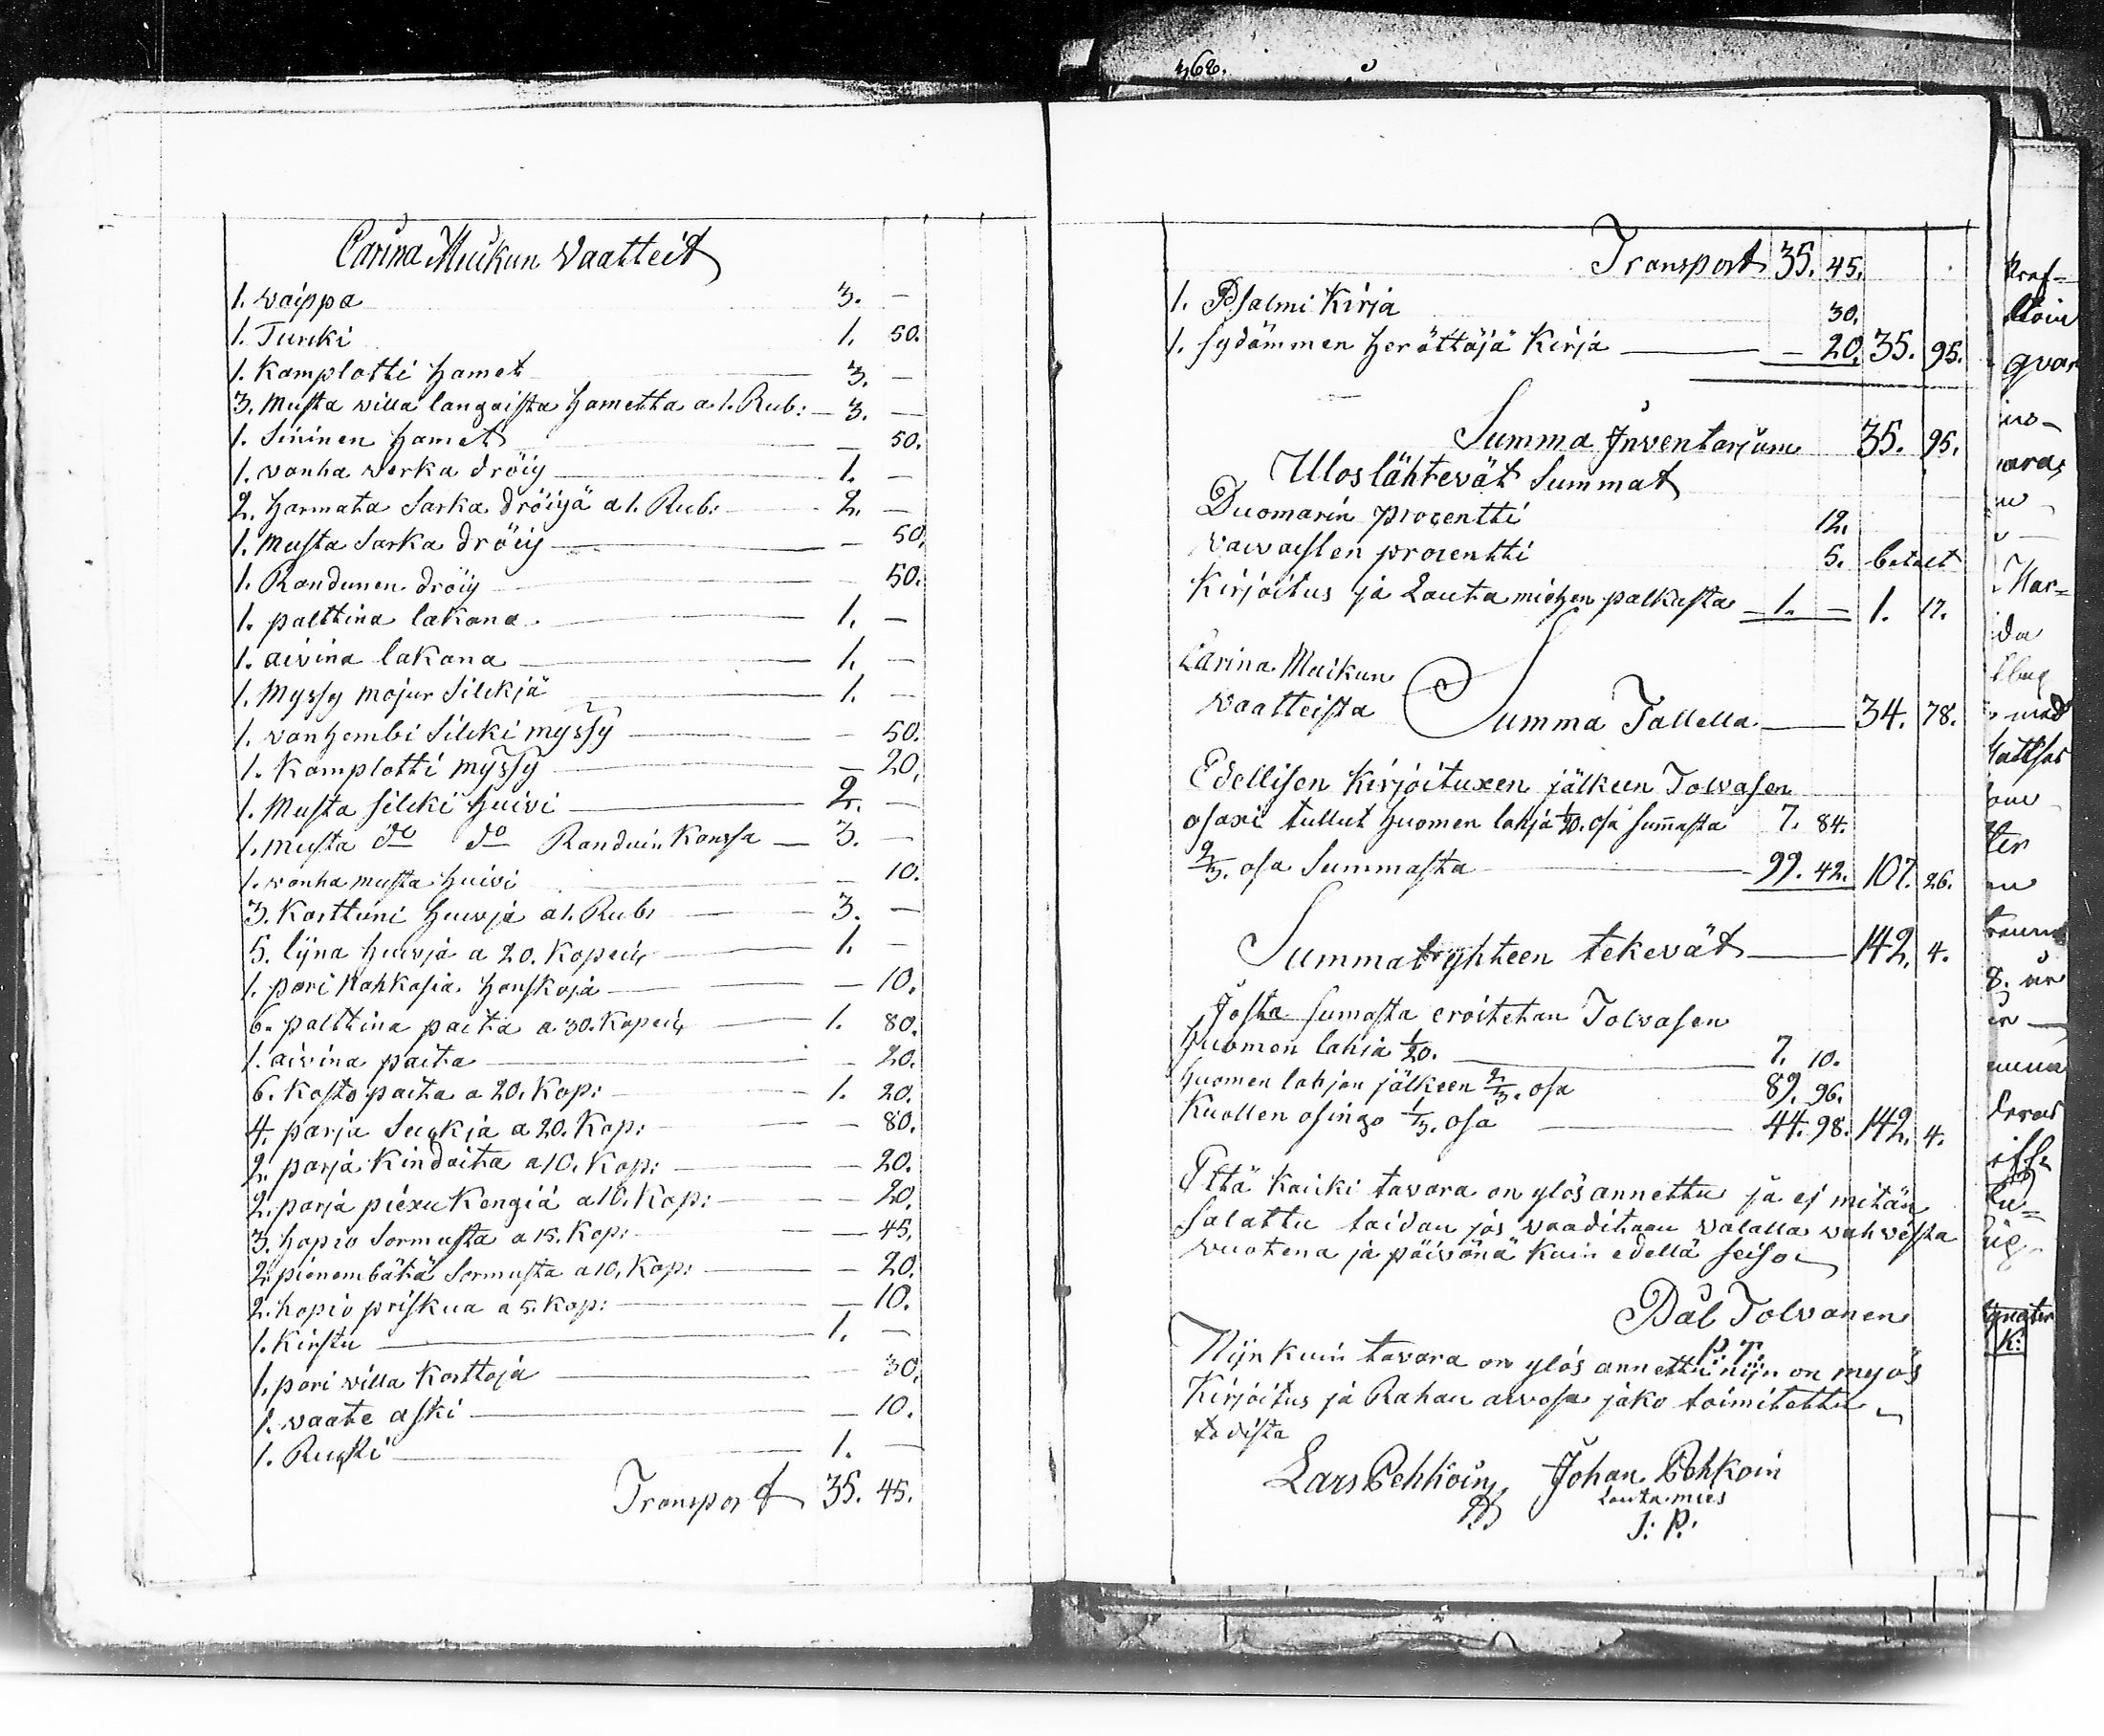 Carina Muikun Vaatteit
1. vaippa 3. —
1. Turcki 1. 50.
1. Kamplotti hamet 3. —
3. Musta villa langaista hametta a 1. Rub: — 3. —
1. Sininen hamet — 50.
1. vanha verka dröiy 1. —
2. harmata Sarka dröiyä a 1. Rub: 2. —
1. Musta Sarka dröiy — 50.
1. Randunen dröiy — 50.
1. palttina lakana 1. —
1. aivina lakana 1. —
1. Myssy mojur Silckjä 1. —
1. vanhembi Silcki myssy — 50.
1. Kamplotti myssy — 20.
1. Musta silcki huivi 2. —
1. musta do do Randuin Kanssa — 3. —
1. vanha musta huivi — 10.
3. Karttuni huivja a 1. Rub: 3. —
5. lijna huivja a 20. Kopeik 1. —
1. pari Nahkasia hanskoja — 10.
6. palttina paita a 30. Kopeik 1. 80.
1. aivina paita — 20.
6. Kasto paita a 20. Kop: 1. 20.
4. parja Suckja a 20. Kop: — 80.
2. parja Kindaita a 10. Kop: — 20.
2. parja piexu Kengiä a 10. Kop: — 20.
3. hopio Sormusta a 15. Kop: — 45.
2. pienembätä Sormusta a 10. Kop: — 20.
2. hopio priskua a 5. Kop: — 10.
1. Kirstu 1. —
1. pari villa Karttoja — 30.
1. vaate aski — 10.
1. Rucki 1. —
Transport 35. 45.
368.
Transport 35. 45.
1. Psalmi Kirja 30.
1. Sydämmen herättäjä Kirja — 20. 35. 95.
Summa Inventarjum 35. 95.
Ulos lähtevät Summat
Duomarin procentti 12.
Vaivaisten procentti 5. betalt
Kirjoitus ja Lautamiehen palkasta — 1. — 1. 17.
Carina Muikun
vaatteista Summa Tallella 34. 78.
Edellisen Kirjoituxen jälkeen Tolvasen
osaxi tullut huomen lahja 1/20. osa sumasta 7. 84.
2/3. osa Summasta 99. 42. 107. 26.
Summat yhteen tekevät 142. 4.
Josta sumasta eroitetan Tolvasen
huomen lahja 1/20. 7. 10.
huomen lahjan jälkeen 2/3. osa 89. 96.
Kuollen osingo 1/3. osa 44. 98. 142. 4.
Että kaicki tavara on ylös annettu ja ej mitän
Salattu taidan jos vaaditaan valalla vahvista
vuotena ja päivänä kuin edellä seiso
Pål Tolvanen
P. T.
Nijn kuin tavara on ylös annettu nijn on myös
Kirjoitus ja Rahan arvosa jako toimitettu
todista
Lars Pehkoin Johan Pehkoin
Lautamies
J: P: